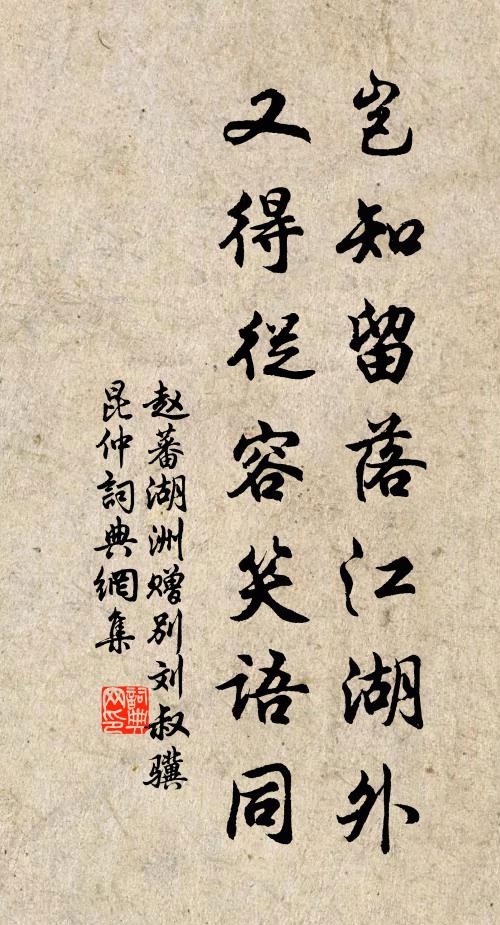 豈知留落江湖外
又得從容笑語同
赵蕃湖洲赠别刘叔骥
昆仲詞典網集
詞典网印